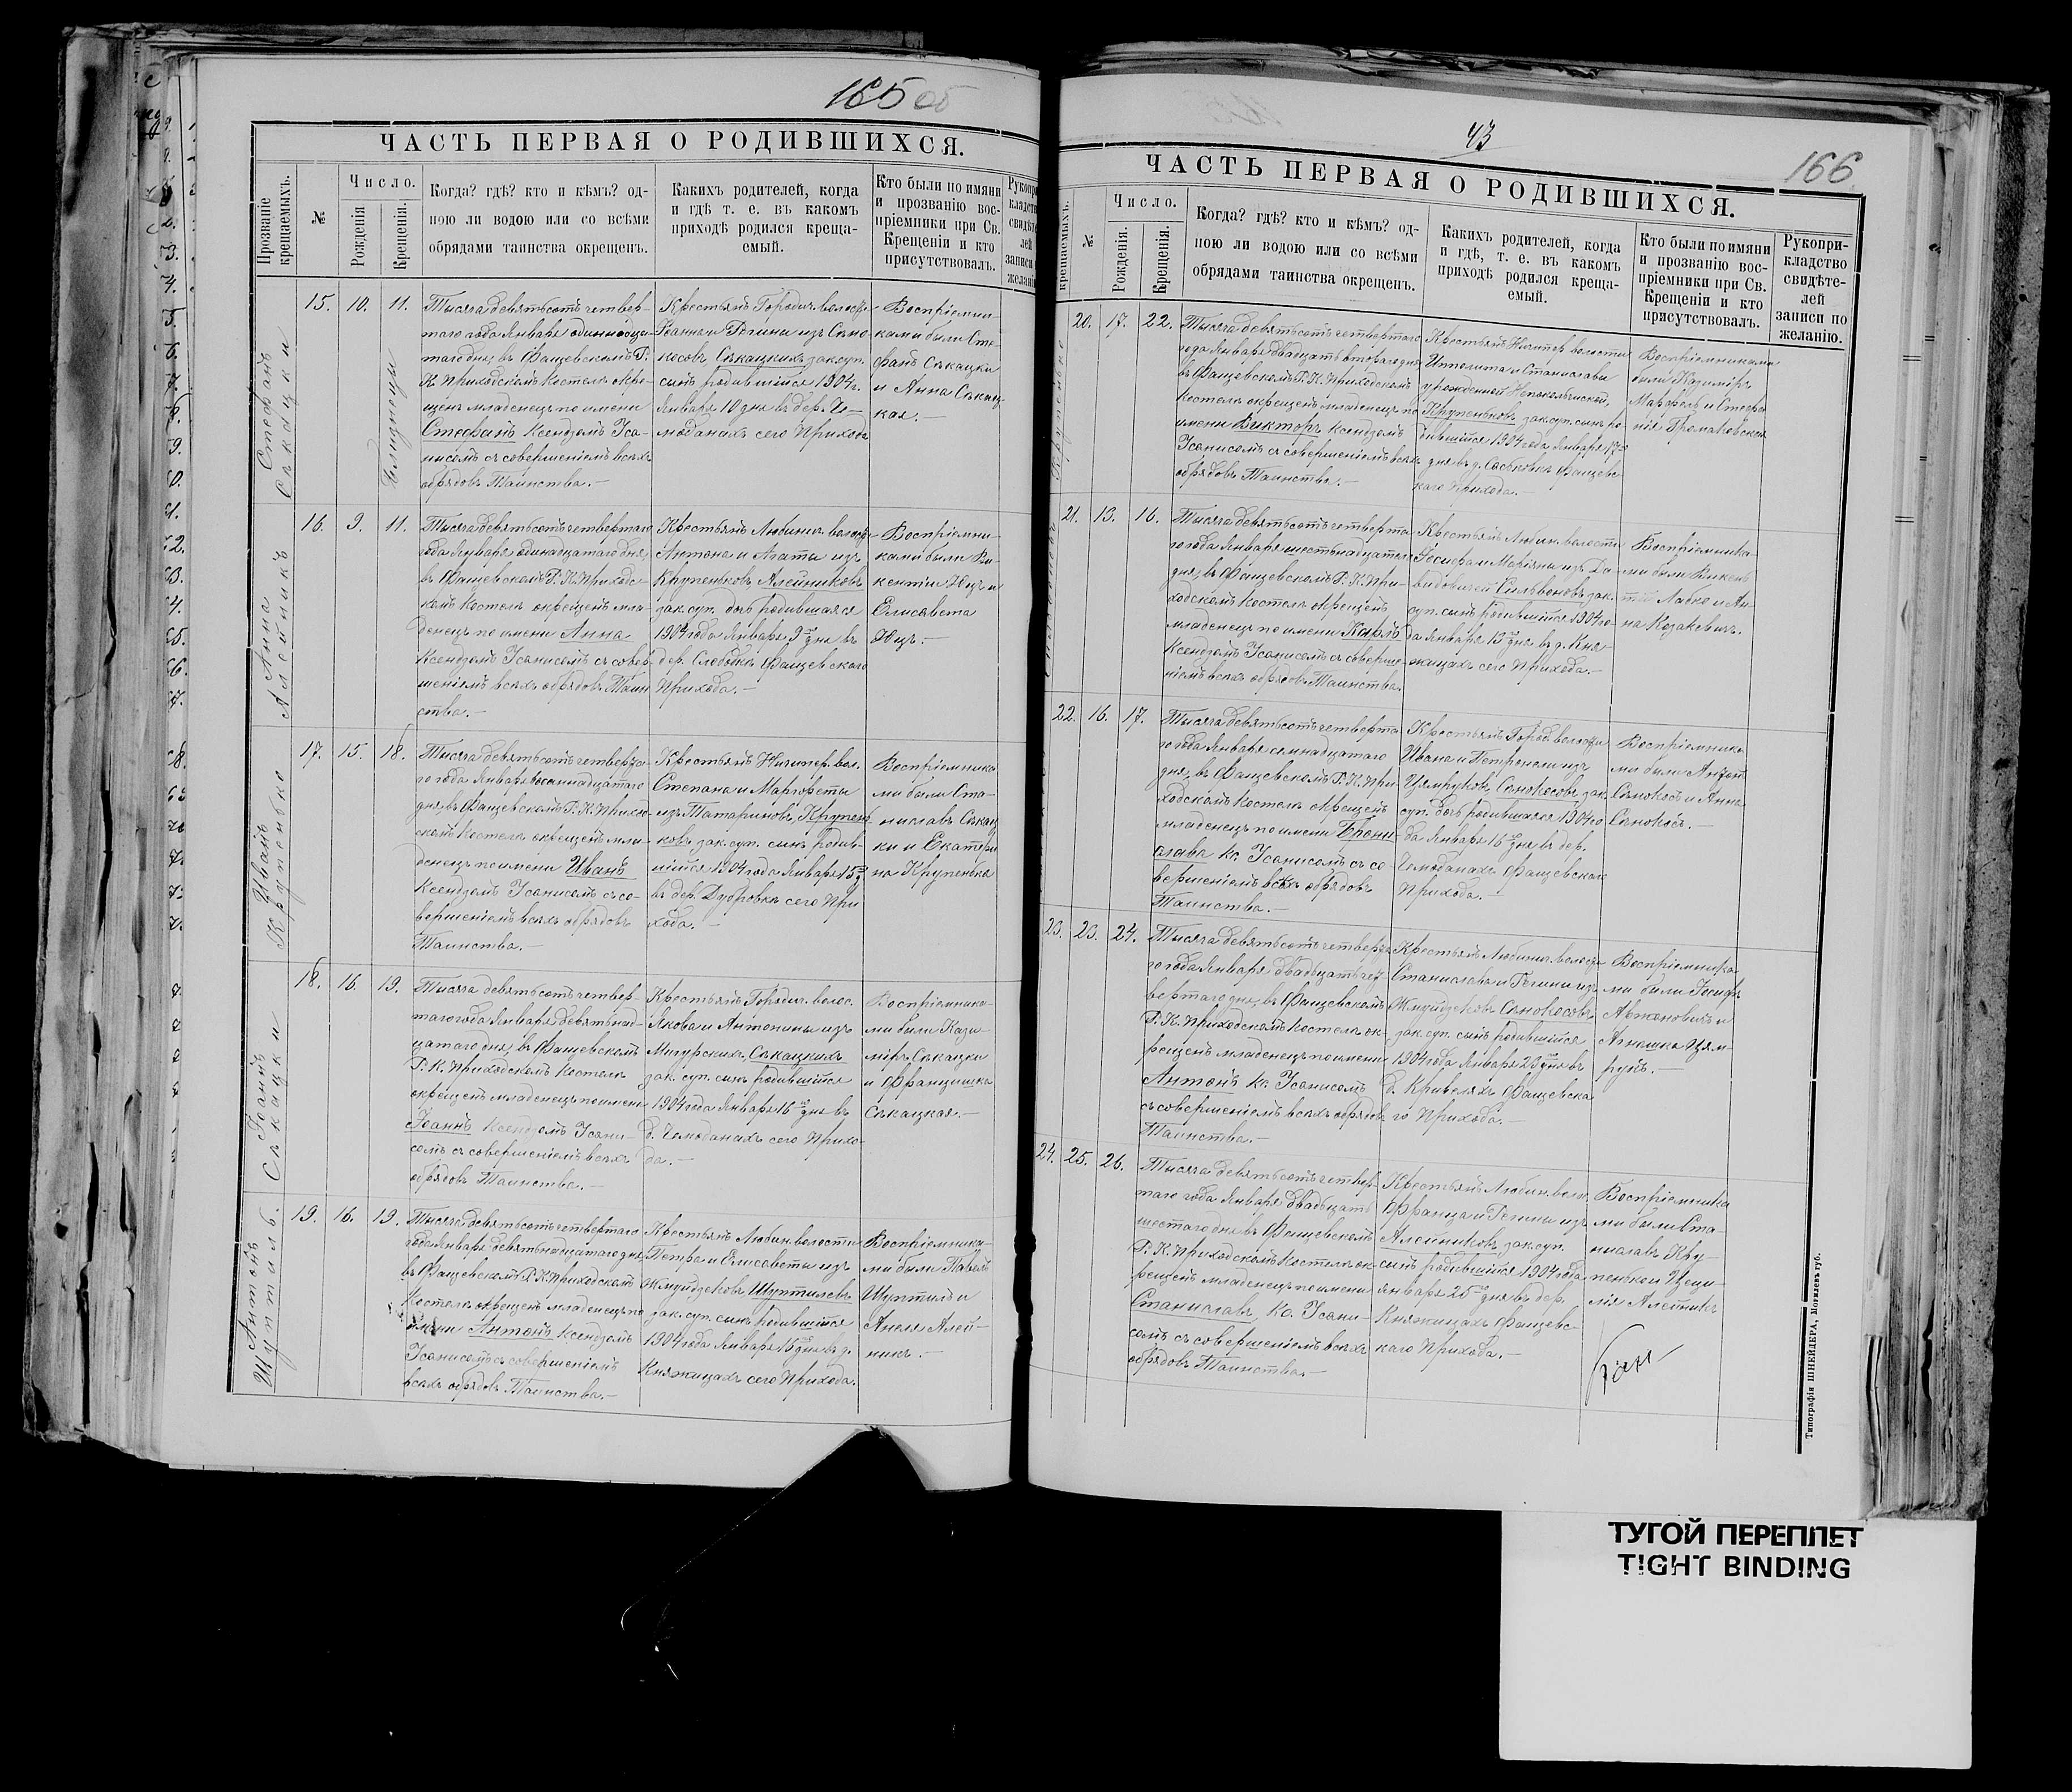 165 об
ЧАСТЬ ПЕРВАЯ О РОДИВШИХСЯ.
Прозваніе
крещаемыхъ.
№
Число.
Рожденія
Крещенія.
Когда? гдѣ? кто и кѣмъ? од-
ною ли водою или со всѣми
обрядами таинства окрещенъ.
Какихъ родителей, когда
и гдѣ т. е. въ какомъ
приходѣ родился креща-
емый.
Кто были по имяни
и прозванію вос-
пріемники при Св.
Крещеніи и кто
присутствовалъ.
Рукопр
кладств
свидѣте
лей
записи
желані
Стефанъ
Сѣкацки
15. 10. 11.
Близнецы
Тысяча девятьсотъ четвер-
таго года Января одинадца-
таго дня, въ Фащевскомъ Р.
К. Приходскомъ Костелѣ окре-
щенъ младенецъ по имени
Стефанъ Ксендзомъ Иса-
нисомъ съ совершеніемъ всѣхъ
обрядовъ Таинства.-
Крестьянъ Городич. волости
Іоанна и Регины изъ Сѣно
косовъ Сѣкацкихъ зак. суп.
сынъ родившійся 1904 г.
Января 10 дня въ дер. Че-
моданахъ сего Прихода
Воспріемни-
ками были Сте
фанъ Сѣкацки
и Анна Сѣкац-
кая.-
Анна
Алейникъ
16. 9. 11.
Тысяча девятьсотъ четвертаго
года Января одинадцатаго дня,
въ Фащевскомъ Р. К. Приходс-
комъ Костелѣ окрещенъ мла-
денецъ по имени Анна
Ксендзомъ Исанисомъ съ совер-
шеніемъ всѣхъ обрядовъ Таин
ства.-
Крестьянъ Любинич. волости
Антона и Агаты изъ
Крупеньковъ, Алейниковъ
зак. суп. дочь родившаяся
1904 года Января 9 дня въ
дер. Слободкѣ Фащевскаго
Прихода.-
Воспріемни-
ками были Ви-
кентій Юцъ и
Елисавета
Юцъ.-
Иванъ
Крупенько
17. 15. 18.
Тысяча девятьсотъ четверта-
го года Января восемнадцатаго
дня, въ Фащевскомъ Р. К. Приход
скомъ Костелѣ окрещенъ мла-
денецъ по имени Иванъ
Ксендзомъ Исанисомъ съ со-
вершеніемъ всѣхъ обрядовъ
Таинства.-
Крестьянъ Ничипер. вол.
Степана и Маргореты
изъ Татариновъ, Крупень-
ковъ зак. суп. сынъ родив-
шійся 1904 года Января 15
въ дер. Дубровкѣ сего При
хода.-
Воспріемника
ми были Ста-
ниславъ Сѣкац
ки и Екатери
на Крупенька
Іоаннъ
Сѣкацки
18. 16. 19.
Тысяча девятьсотъ четвер-
таго года Января девятьнад-
цатаго дня, въ Фащевскомъ
Р. К. Приходскомъ Костелѣ
окрещенъ младенецъ по имени
Іоаннъ Ксендзомъ Исани-
сомъ съ совершеніемъ всѣхъ
обрядовъ Таинства.-
Крестьянъ Городич. волос.
Якова и Антонины изъ
Мигурскихъ, Сѣкацкихъ
зак. суп. сынъ родившійся
1904 года Января 16 дня въ
д. Чемоданахъ сего Прихо-
да.-
Воспріемника-
ми были Кази-
міръ Сѣкацки
и Францишка
Сѣкацкая.-
Антонъ
Шуптиль.
19. 16. 19.
Тысяча девятьсотъ четвертаго
года Января девятьнадцатаго дня,
въ Фащевскомъ Р. К. Приходскомъ
Костелѣ окрещенъ младенецъ по
имени Антонъ Ксендзомъ
Исанисомъ съ совершеніемъ
всѣхъ обрядовъ Таинства.-
Крестьянъ Любин. волости
Петра и Елисаветы изъ
Жмуйдековъ, Шуптилевъ
зак. суп. сынъ родившійся
1904 года Января 16 дня въ д.
Княжицахъ сего Прихода.
Воспріемника-
ми были Павелъ
Шуптиль и
Анеля Алей-
никъ.-
43
166
ЧАСТЬ ПЕРВАЯ О РОДИВШИХСЯ.
крещаемыхъ.
№
Число.
Рожденія.
Крещенія.
Когда? гдѣ? кто и кѣмъ? од-
ною ли водою или со всѣми
обрядами таинства окрещенъ.
Какихъ родителей, когда
и гдѣ, т. е. въ какомъ
приходѣ родился креща-
емый.
Кто были по имяни
и прозванію вос-
пріемники при Св.
Крещеніи и кто
присутствовалъ.
Рукопри-
кладство
свидѣте-
лей
записи по
желанію.
20. 17. 22.
Тысяча девятьсотъ четвертаго
года Января двадцать втораго дня
въ Фащевскомъ Р. К. Приходскомъ
Костелѣ окрещенъ младенецъ по
имени Викторъ Ксендзомъ
Исанисомъ съ совершеніемъ всѣхъ
обрядовъ Таинства.-
Крестьянъ Ничипер. волости
Ипполита и Станиславы
урожденной
Крупеньковъ зак. суп. сынъ ро-
дившійся 1904 года Января 17
дня въ д. Фащевс-
каго Прихода.-
Воспріемниками
были Казиміръ
и Стефа
нія
21. 13. 16.
Тысяча девятьсотъ четверта
го года Января шестьнадцатаго
дня, въ Фащевскомъ Р. К. При-
ходскомъ Костелѣ окрещенъ
младенецъ по имени Карлъ
Ксендзомъ Исанисомъ съ соверше-
ніемъ всѣхъ обрядовъ Таинства.
Крестьянъ Любин. волости
Іосифа и Маріяны изъ Да-
видовичей зак.
суп. сынъ родившійся 1904 го-
да Января 13 дня въ д. Кня-
жицахъ сего Прихода.-
Воспріемника-
ми были Викен-
тій Лабко и Ан-
на Козакевичъ.
22. 16. 17.
Тысяча девятьсотъ четверта
го года Января семнадцатаго
дня, въ Фащевскомъ Р. К. При-
ходскомъ Костелѣ окрещенъ
младенецъ по имени Брони-
слава Кс. Исанисомъ съ со-
вершеніемъ всѣхъ обрядовъ
Таинства.-
Крестьянъ Город. волости
Ивана и Петронели изъ
Цямруковъ, Сѣнокосовъ зак.
суп. дочь родившаяся 1904 го
да Января 16 дня въ дер.
Чемоданахъ Фащевскаго
Прихода.-
Воспріемника-
ми были Антонъ
Сѣнокосъ и Анна
Сѣнокосъ.-
23. 23. 24.
Тысяча девятьсотъ четверта
го года Января двадцать чет-
вертаго дня, въ Фащевскомъ
Р. К. Приходскомъ Костелѣ ок-
рещенъ младенецъ по имени
Антонъ Кс. Исанисомъ
съ совершеніемъ всѣхъ обрядов
Таинства.-
Крестьянъ Любинич. волости
Станислава и Регины изъ
Жмуйдзековъ Сѣнокосовъ
зак. суп. сынъ родившійся
1904 года Января 23 дня въ
д. Кривеляхъ Фащевска
го Прихода.-
Воспріемника-
ми были Іосифъ
Авжановичъ и
Агнешка Цям-
рукъ.-
24. 25. 26.
Тысяча девятьсотъ четвер-
таго года Января двадцать
шестаго дня въ Фащевскомъ
Р. К. Приходскомъ Костелѣ ок-
рещенъ младенецъ по имени
Станиславъ, Кс. Исани-
сомъ съ совершеніемъ всѣхъ
обрядовъ Таинства.-
Крестьянъ Любин. воло.
Франца и Регины изъ
Алейниковъ зак. суп.
сынъ родившійся 1904 года
Января 25 дня въ дер.
Княжицахъ Фащевс-
каго Прихода.-
Воспріемника
ми были Ста-
ниславъ Кру-
пенько и Цеци-
лія Алейникъ
Типографія ШНЕЙДЕРА, Могилевъ губ.
ТУГОЙ ПЕРЕПЛЕТ
TIGHT BINDING